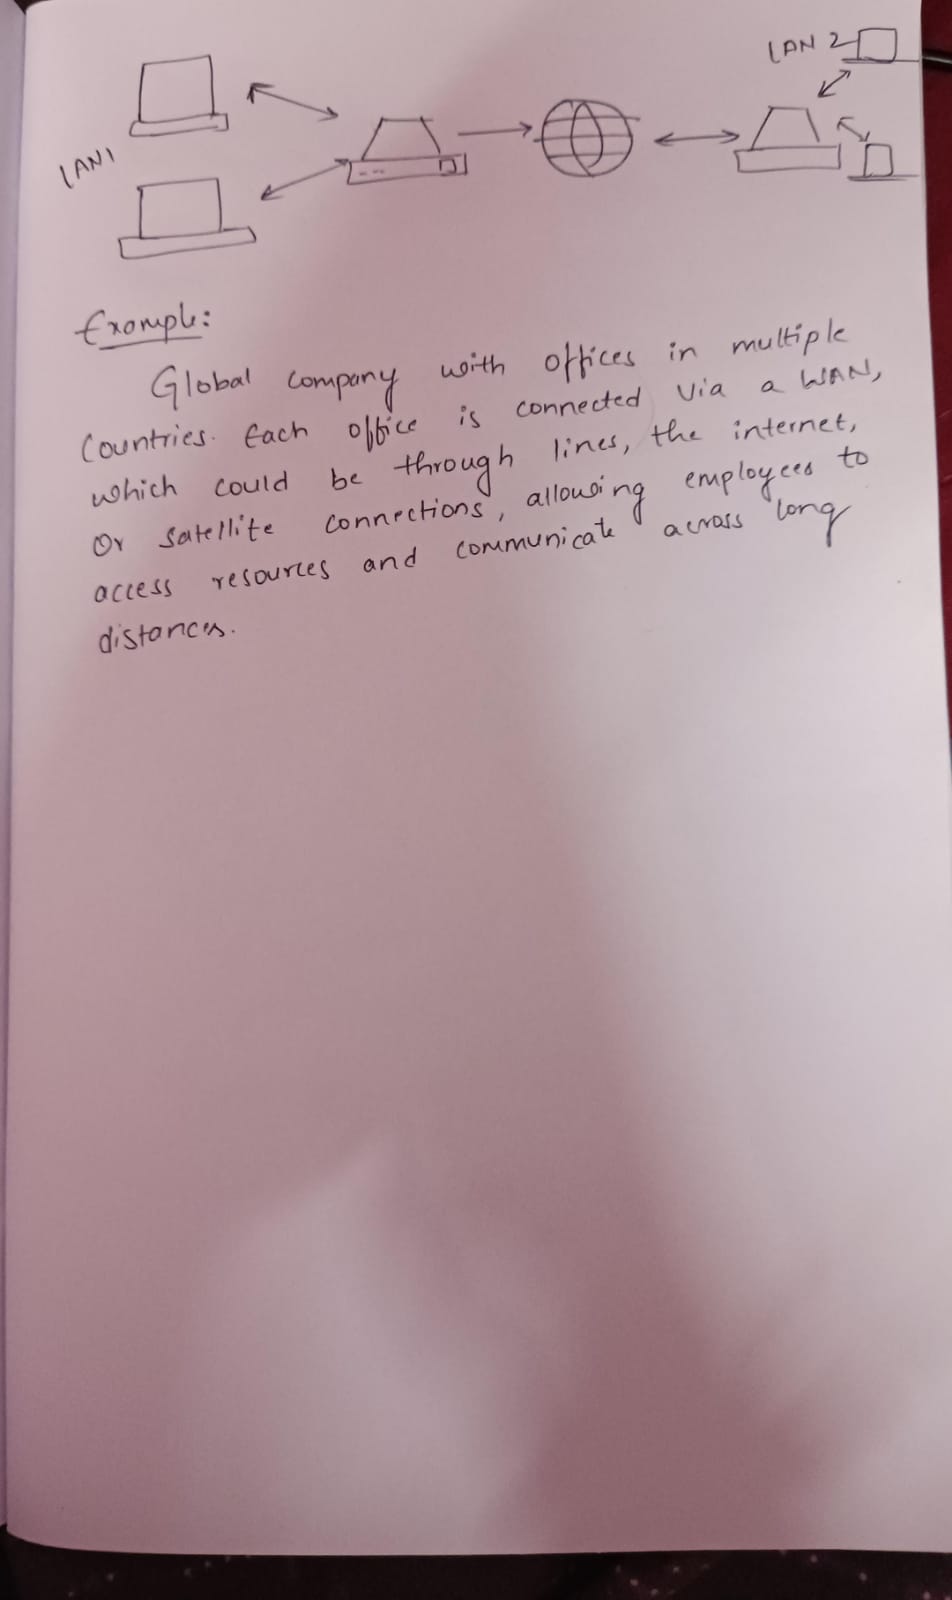 LAN 2
LAN1
Example:
Global company with offices in multiple
Countries. Each office is connected via a WAN,
which could be through lines, the internet,
Or satellite connections, allowing employees to
access resources and communicate across long
distances.